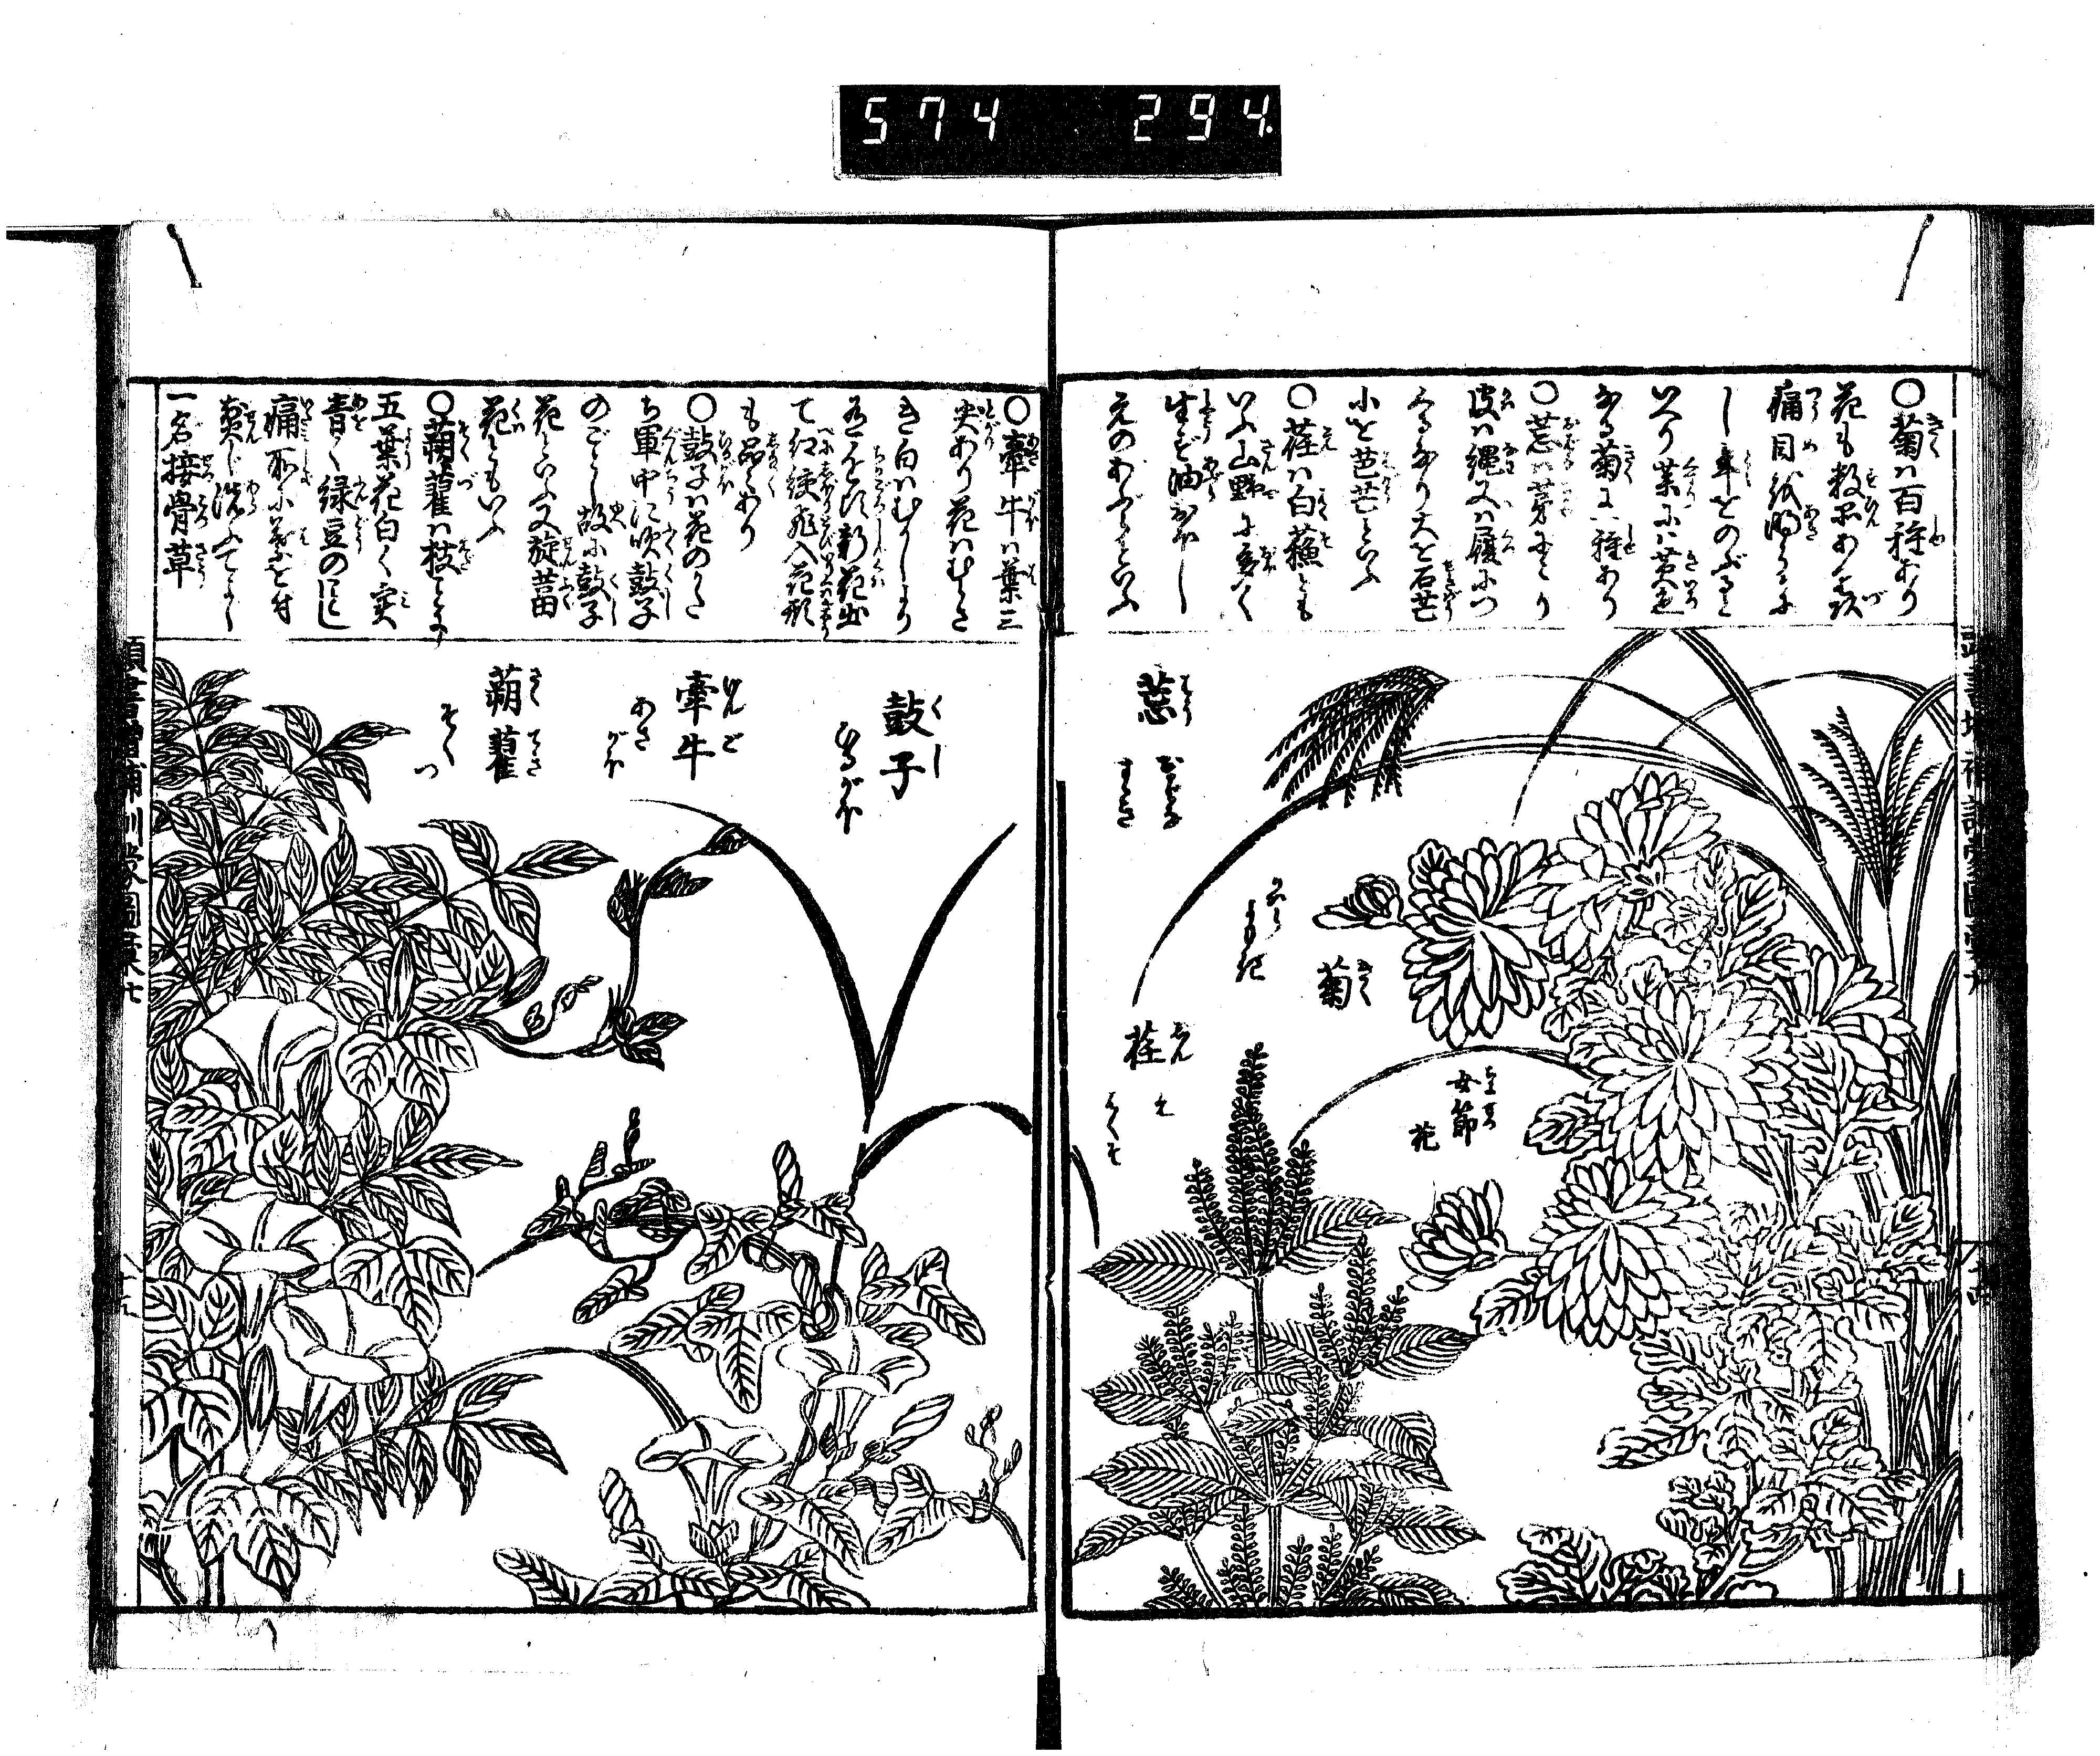 574 294
○菊は百種あり
花も数品あり頭
痛目を明らかに
し年をのぶると
いへり葉に黄色
なる菊に一種あり
皮は縄又は履につ
くるなり大を石芒
小を芭芒といふ
○荏は白蘓とも
いふ山野に多く
生ず油おほし
えのあぶらといふ
菊 きく
女節花
荏
え
○牽牛は葉三
尖あり花はむらさ
き白はむかしより
て紅纐飛入花形
も品々あり
○鼓子は花のかた
ち軍中に吹鼓子
のごとし故に鼓子
花といふ又旋葍
花ともいふ
○蒴藋は枝ごとに
五葉花白く実
青く緑豆のごとし
痛所に葉を付
煎じ洗ふてよし
一名接骨草
鼓子 くし
ひるがほ
牽牛 けんご
あさがほ
蒴藋 さくてき
そくづ
頭書増補訓蒙図彙